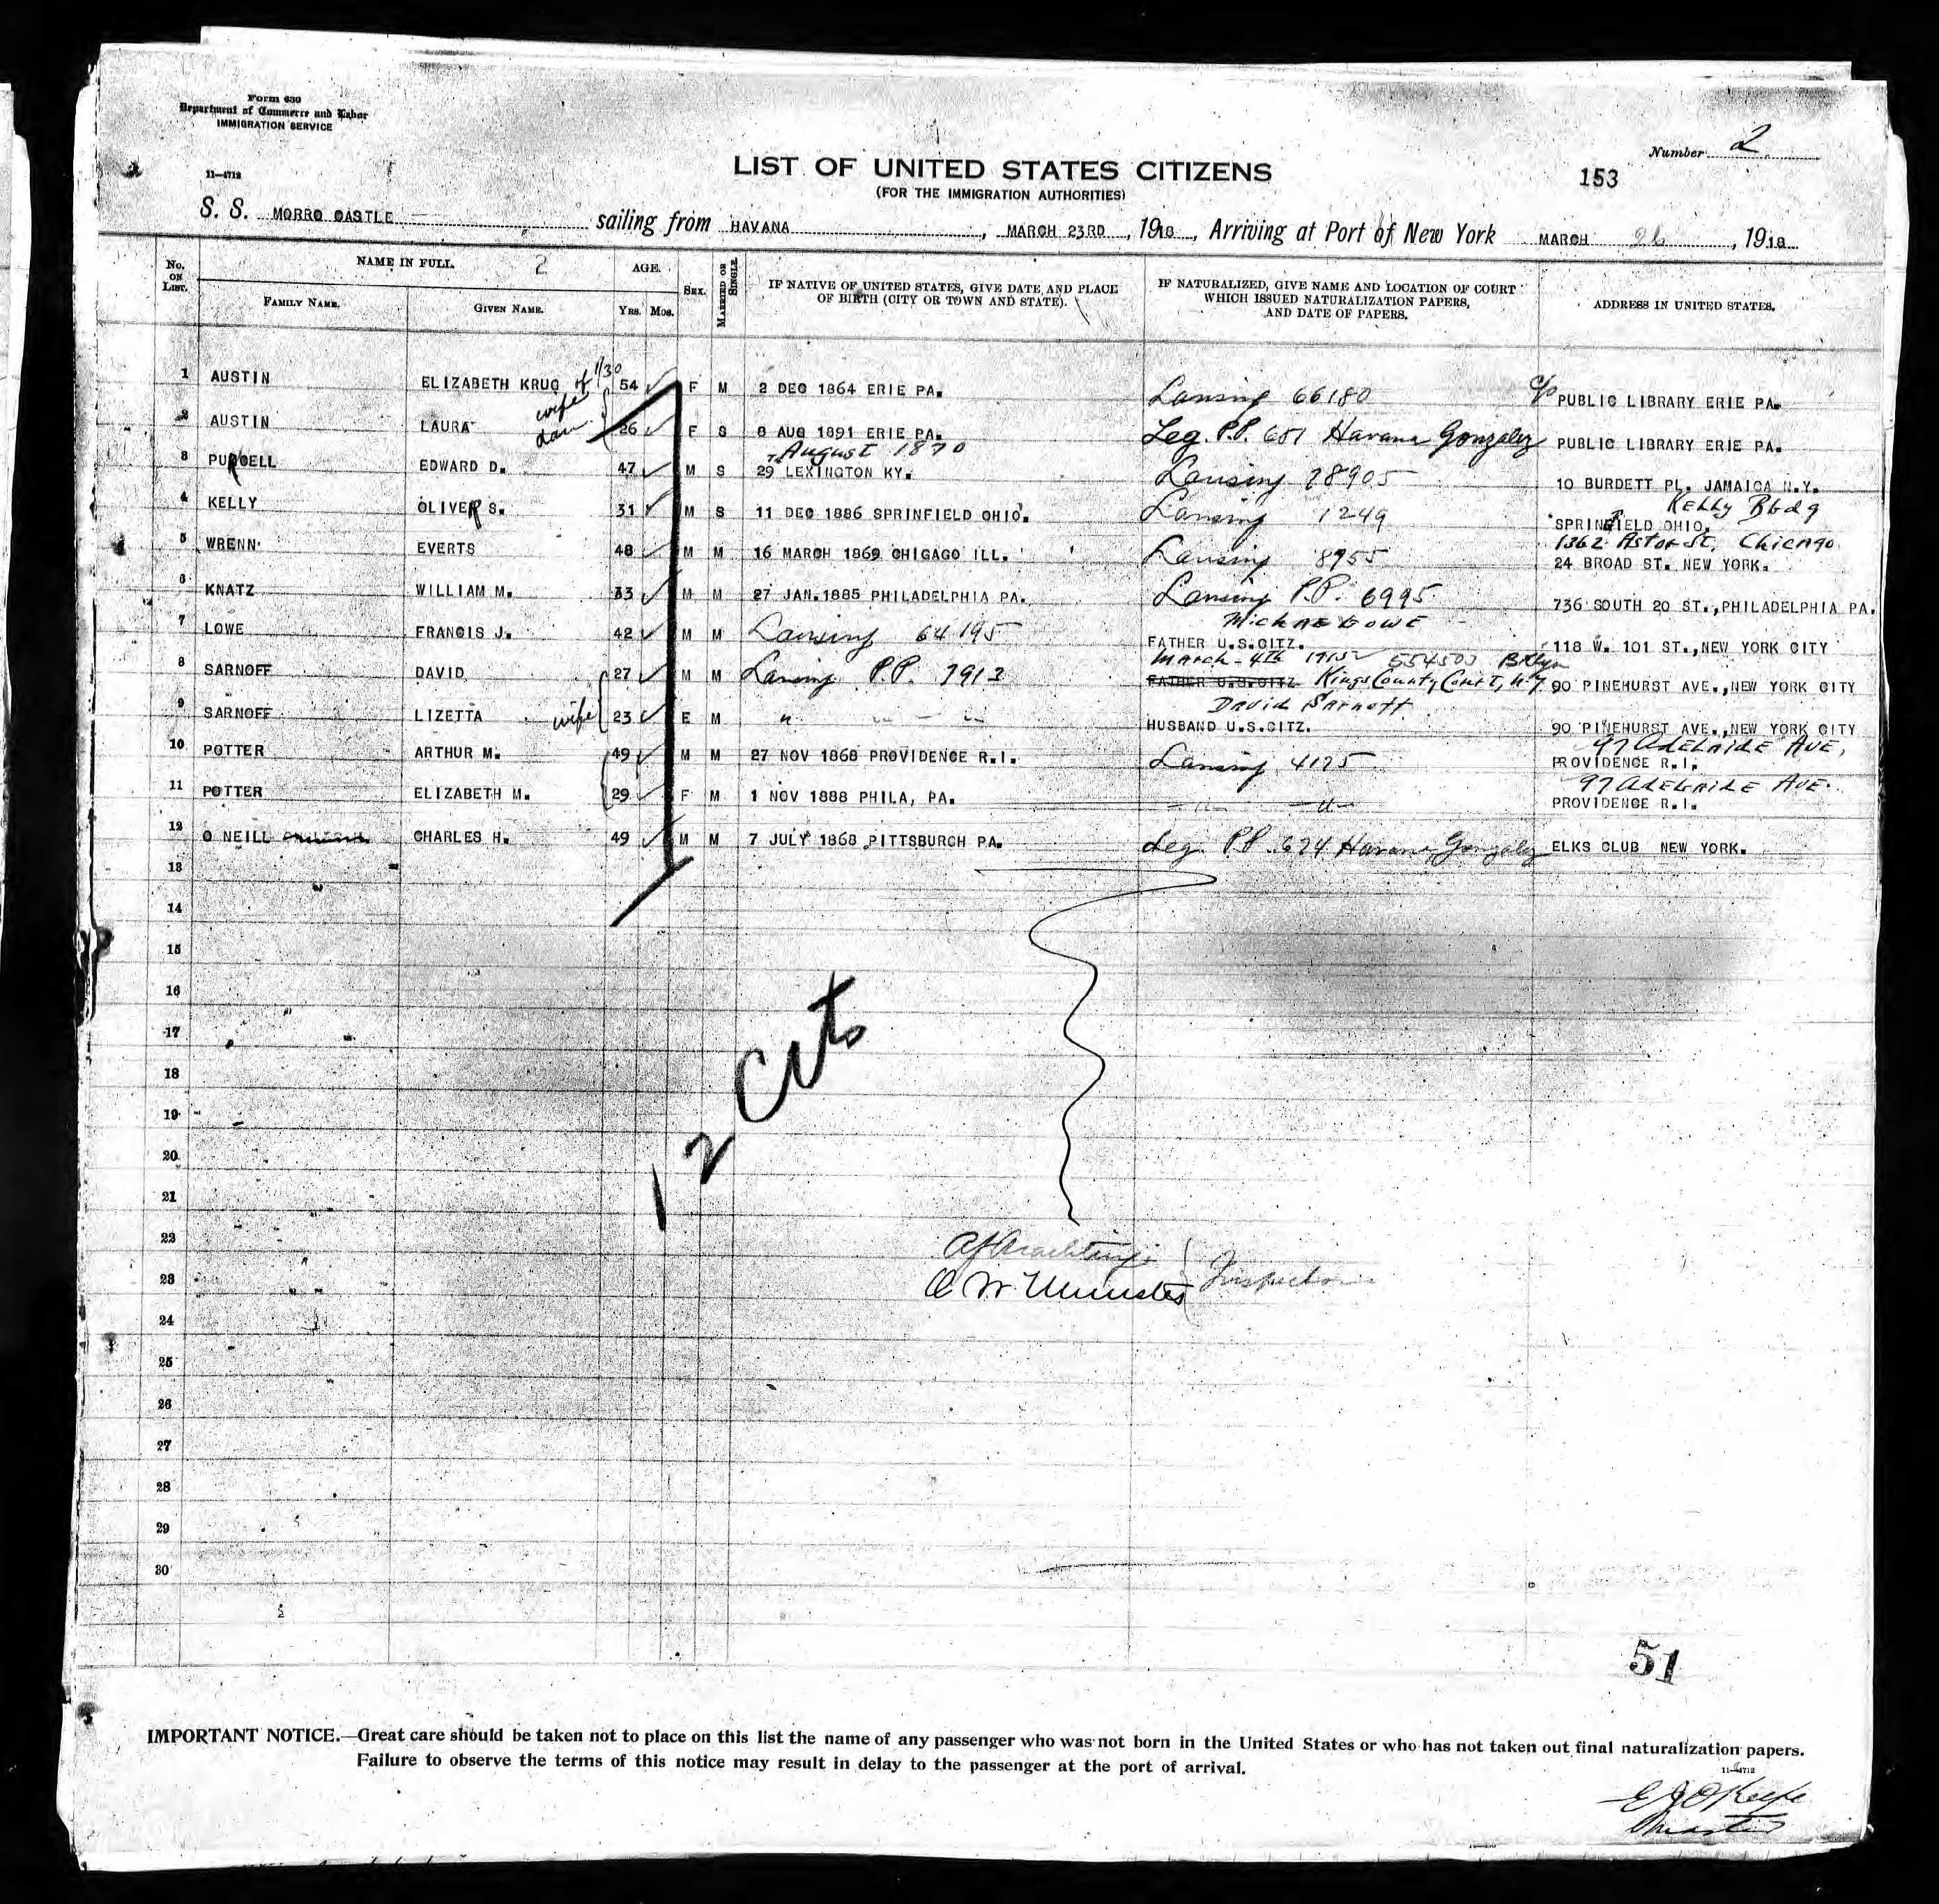 Form 630
Department of Commerce and Labor
IMMIGRATION SERVICE
11—4712
Number 2
LIST OF UNITED STATES CITIZENS
153
(FOR THE IMMIGRATION AUTHORITIES)
S. S. MORRO CASTLE sailing from HAVANA, MARCH 23RD, 1918, Arriving at Port of New York MARCH 26, 1918
No. ON LIST. NAME IN FULL. 2 AGE. SEX. MARRIED OR SINGLE. IF NATIVE OF UNITED STATES, GIVE DATE AND PLACE OF BIRTH (CITY OR TOWN AND STATE). IF NATURALIZED, GIVE NAME AND LOCATION OF COURT WHICH ISSUED NATURALIZATION PAPERS, AND DATE OF PAPERS. ADDRESS IN UNITED STATES.
FAMILY NAME. GIVEN NAME. Yrs. Mos.
1 AUSTIN ELIZABETH KRUG wife of 54 F M 2 DEC 1864 ERIE PA. Lansing 66180 c/o PUBLIC LIBRARY ERIE PA.
2 AUSTIN LAURA dau 26 F S 8 AUG 1891 ERIE PA. Leg. P.P. 681 Havana Gonzalez PUBLIC LIBRARY ERIE PA.
August 1870
3 PURCELL EDWARD D. 47 M S 29 LEXINGTON KY. Lansing 28905 10 BURDETT PL. JAMAICA N.Y.
Kelly Bldg
4 KELLY OLIVER S. 31 M S 11 DEC 1886 SPRINFIELD OHIO. Lansing 1249 SPRINGFIELD OHIO.
1362 Astor St. Chicago
5 WRENN EVERTS 48 M M 16 MARCH 1869 CHIGAGO ILL. Lansing 8955 24 BROAD ST. NEW YORK.
6 KNATZ WILLIAM M. 33 M M 27 JAN.1885 PHILADELPHIA PA. Lansing P.P. 6995 736 SOUTH 20 ST.,PHILADELPHIA PA.
7 LOWE FRANCIS J. 42 M M Lansing 64195 FATHER U.S.CITZ. 118 W. 101 ST.,NEW YORK CITY
March 4th 1915 554503 Bklyn
8 SARNOFF DAVID 27 M M Lansing P.P. 7913 FATHER U.S.CITZ Kings County Court, N.Y. 90 PINEHURST AVE.,NEW YORK CITY
David Sarnoff
9 SARNOFF LIZETTA wife 23 F M " " - " HUSBAND U.S.CITZ. 90 PINEHURST AVE.,NEW YORK CITY
97 Adelaide Ave,
10 POTTER ARTHUR M. 49 M M 27 NOV 1868 PROVIDENCE R.I. Lansing 4175 PROVIDENCE R.I.
97 Adelaide Ave.
11 POTTER ELIZABETH M. 29 F M 1 NOV 1888 PHILA, PA. - " - " - PROVIDENCE R.I.
12 O NEILL CHARLES H. 49 M M 7 JULY 1868 PITTSBURGH PA. Leg. P.P. 674 Havana Gonzalez ELKS CLUB NEW YORK.
13
14
15
16
17
18
19
20
21
12 Cits
22
23
Inspectors
24
25
26
27
28
29
30
51
IMPORTANT NOTICE.—Great care should be taken not to place on this list the name of any passenger who was not born in the United States or who has not taken out final naturalization papers.
Failure to observe the terms of this notice may result in delay to the passenger at the port of arrival.
11—4712
E J O'Keefe
Master